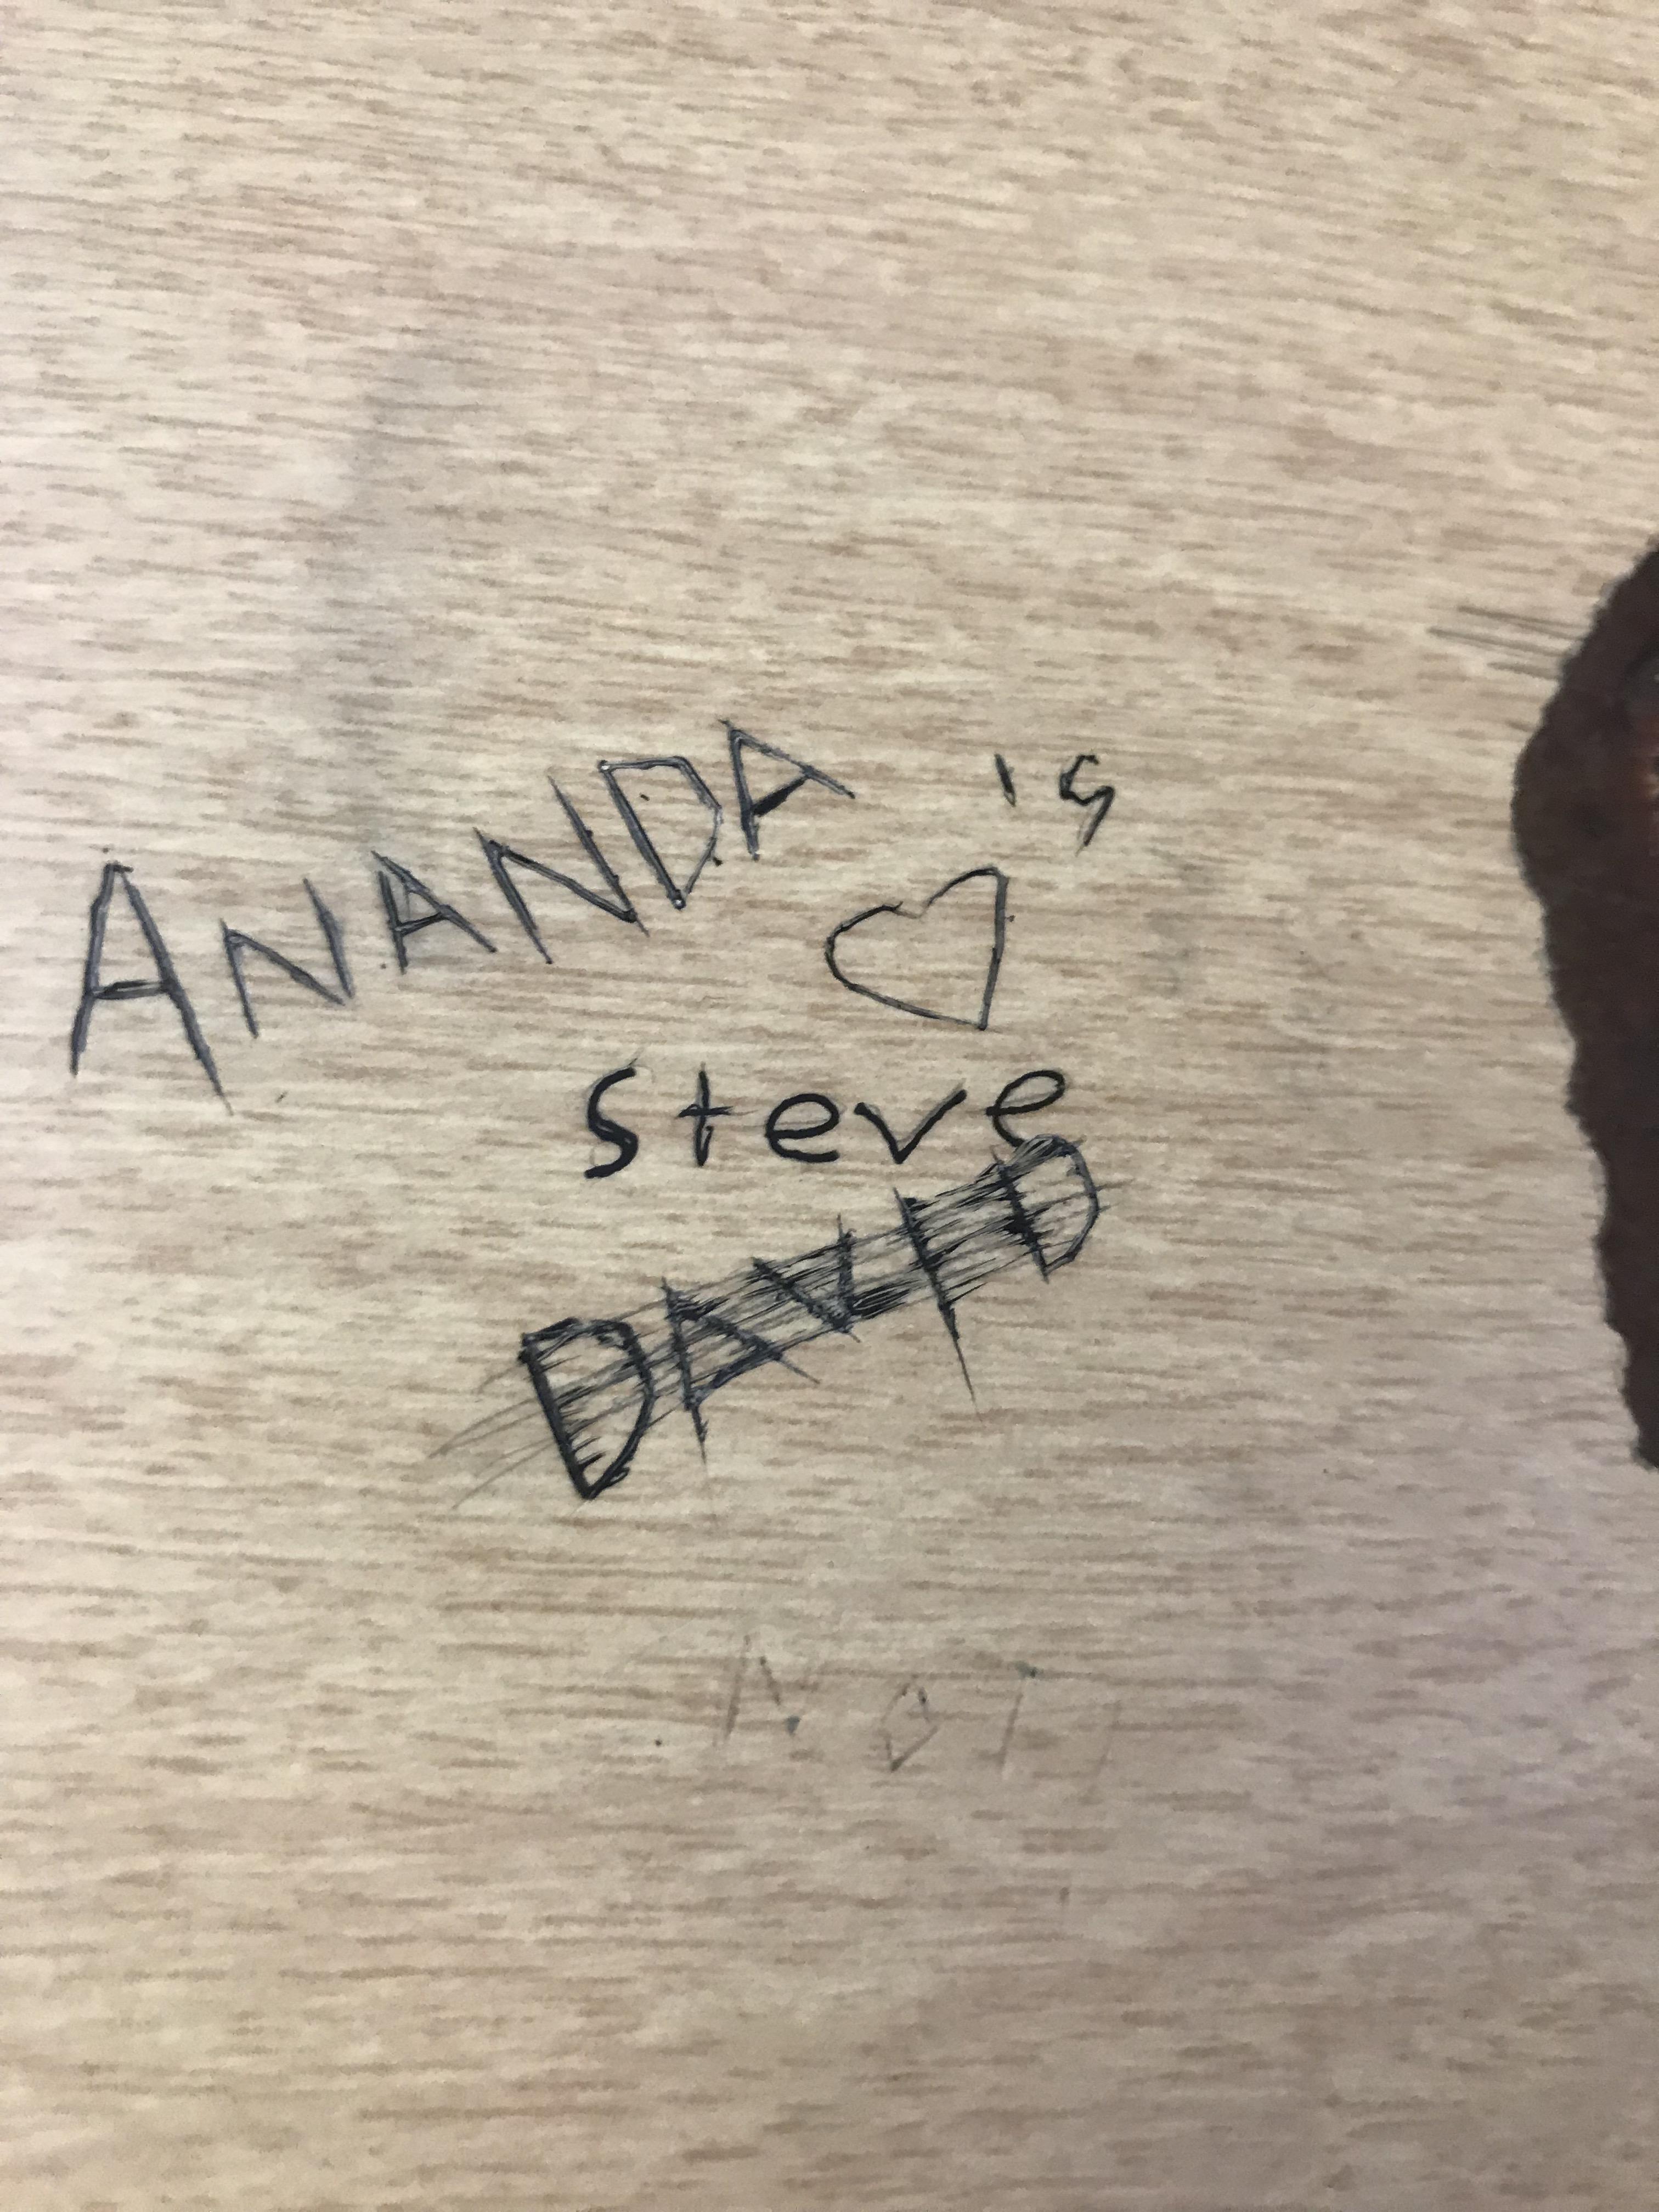 ANANDA is
♡
steve
DAVID
NOT